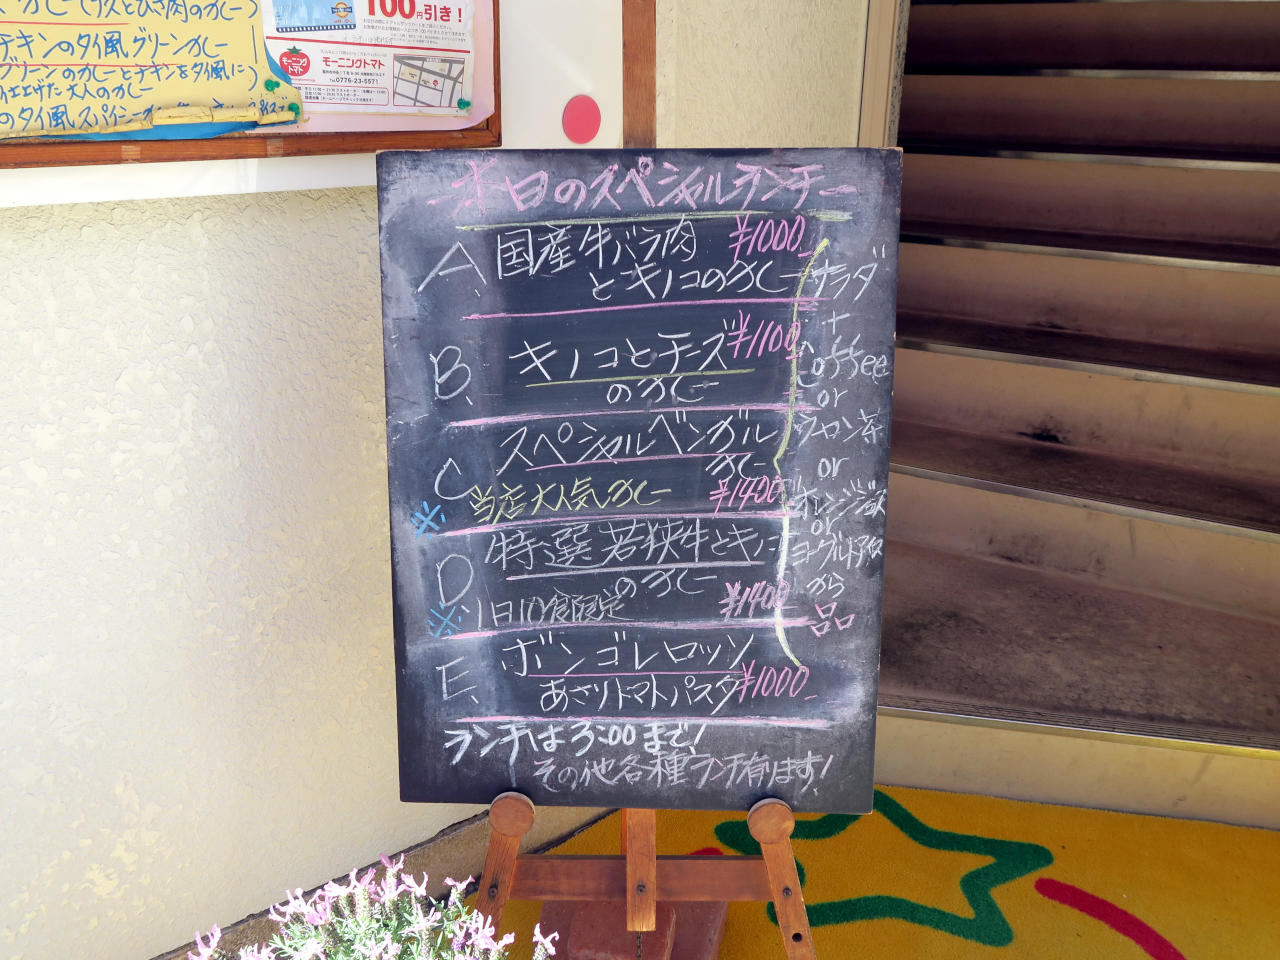 チキンのタイ風グリーンカレー
グリーンのカレーとチキンをタイ風に
仕上げた大人のカレー
のタイ風スパイシーカ
100円引き!
モーニング
トマト
モーニングトマト
Tel.0776-23-5571
本日のスペシャルランチー
A、国産牛バラ肉 ¥1000
とキノコのカレー
B、キノコとチーズ ¥1100
のカレー
C スペシャルベンガル
カレー
※ 当店大人気カレー ¥1400
D 特選若狭牛とキノコ
のカレー
※ 1日10食限定 ¥1400
E、ボンゴレロッソ
あさりトマトパスタ ¥1000
サラダ
+
Coffee
or
ウーロン茶
or
オレンジジュース
or
ヨーグルトアイス
から
一品
ランチは3:00まで!
その他各種ランチ有ります!